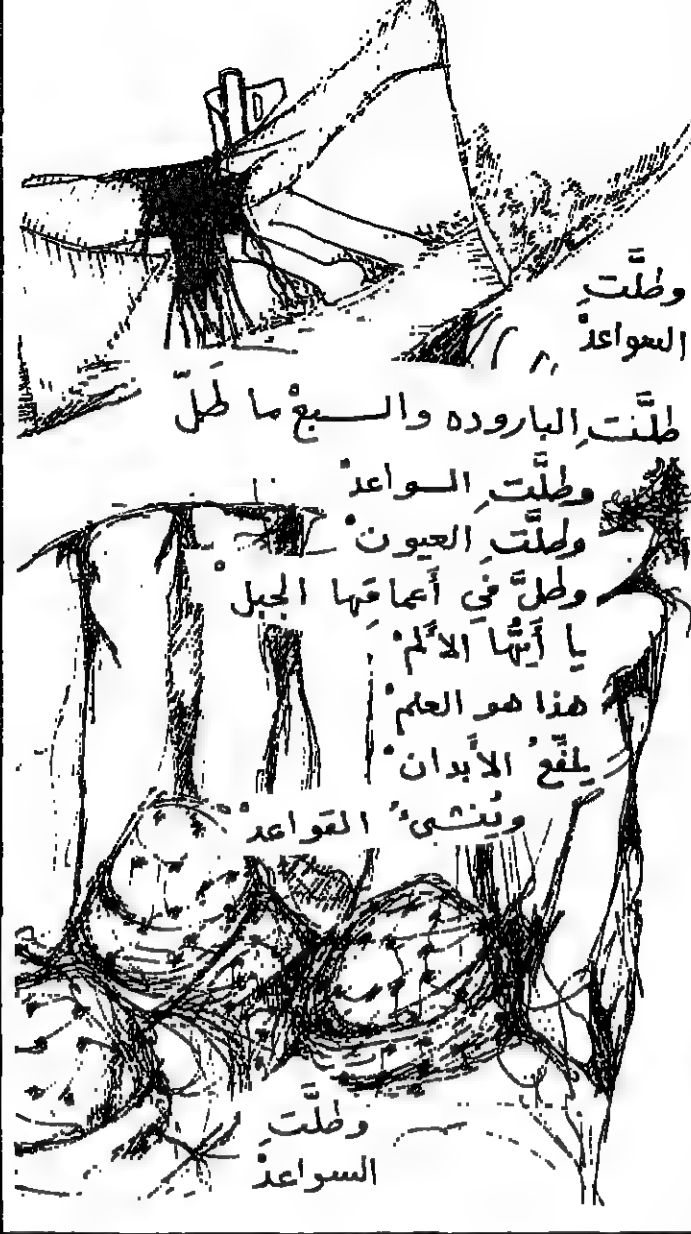 وطلَّتِ
السواعدْ
طلَّتِ الباروده والسبعْ ما طلّ
وطلَّتِ السواعدْ
وطلَّتِ العيونْ
وطلَّ في أعماقِها الجبلْ
يا أيُّها الألمْ
هذا هو العلمْ
يلفّعُ الأبدانْ
ويُنشىءُ القواعدْ
وطلَّتِ
السواعدْ